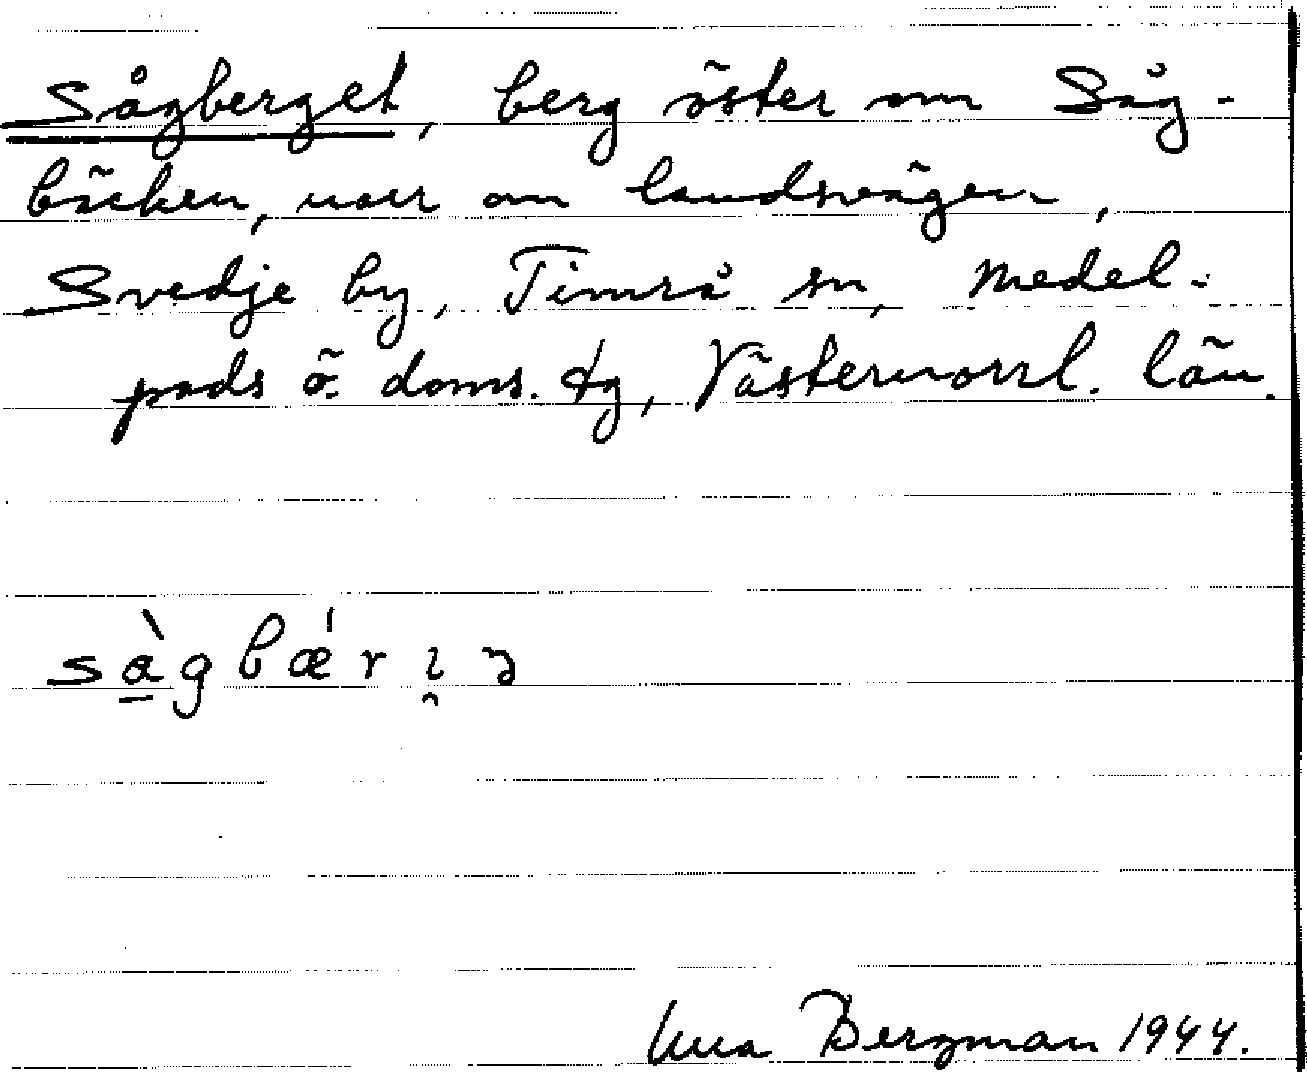 Sågberget, berg öster om Såg-
bäcken, norr om landsvägen,
Svedje by, Timrå sn, Medel-
pads ö. doms. tg, Västernorrl. län.
Bergman 1944.